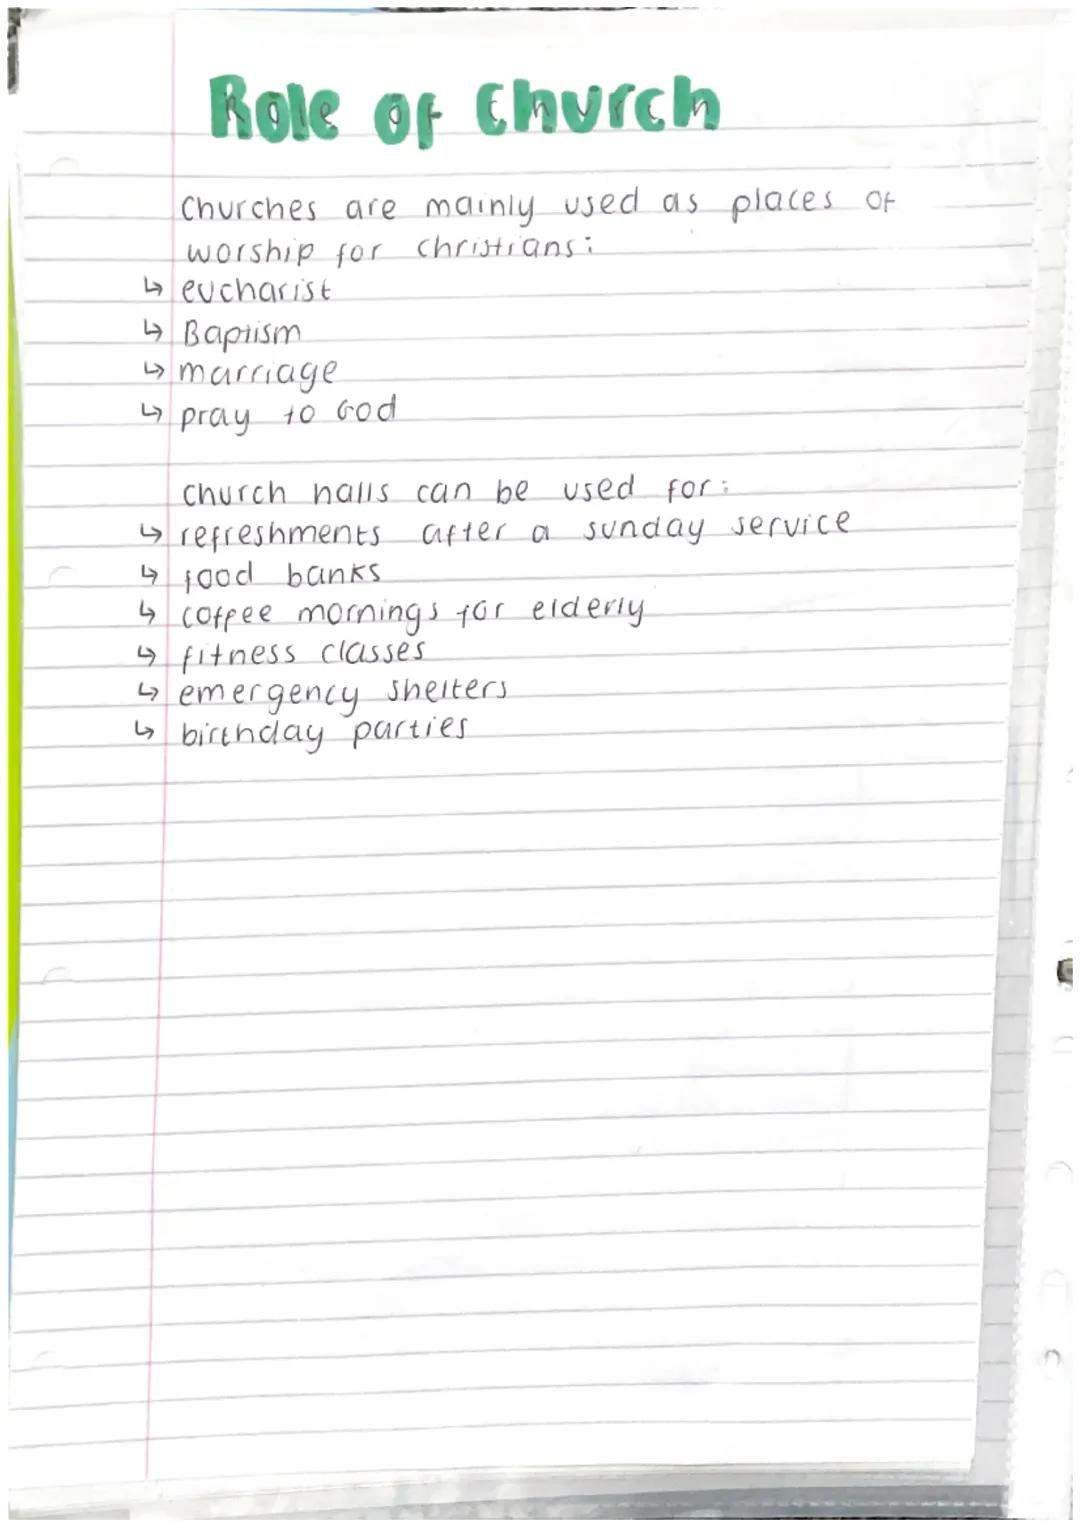 Role of Church
Churches are mainly used as places of
worship for Christians:
↳ eucharist
↳ Baptism
↳ marriage
↳ pray to God
Church halls can be used for:
↳ refreshments after a sunday service
↳ food banks
↳ coffee mornings for elderly
↳ fitness classes
↳ emergency shelters
↳ birthday parties